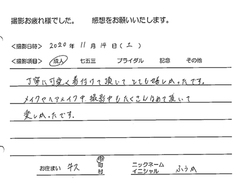 撮影お疲れ様でした。 感想をお願いいたします。
<撮影日時> 2020年 11月 14日 (土)
<撮影項目> 成人 七五三 ブライダル 記念 その他
丁寧に可愛く着付けて頂いてとても嬉しかったです。
メイクやヘアメイク中、撮影中もたくさんほめて頂いて
楽しめたです。
お住まい 市町村 ニックネーム イニシャル ふうの